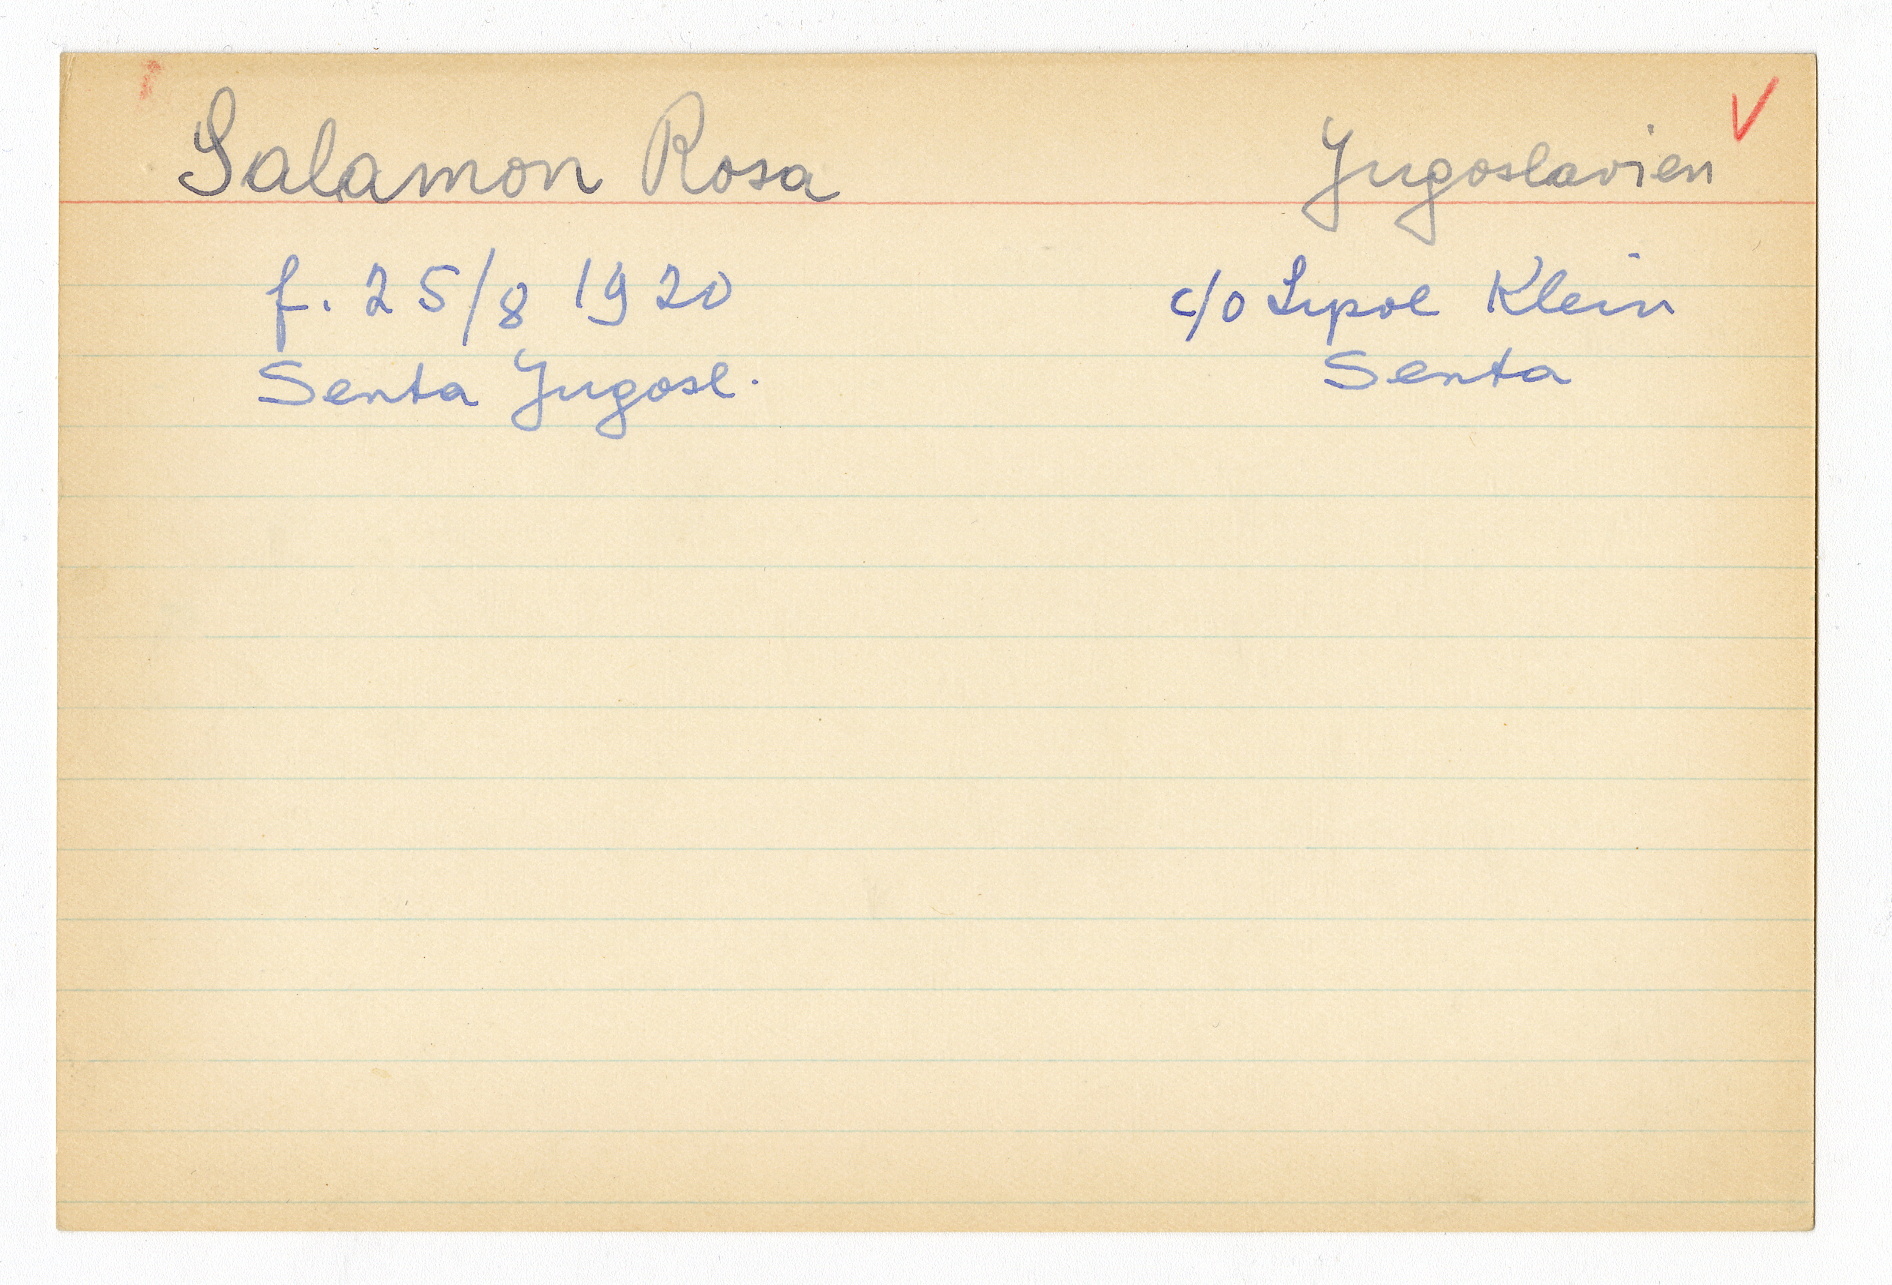 Salamon Rosa Jugoslavien
f. 25/8 1920 c/o Lipol Klein
Senta Jugosl. Senta